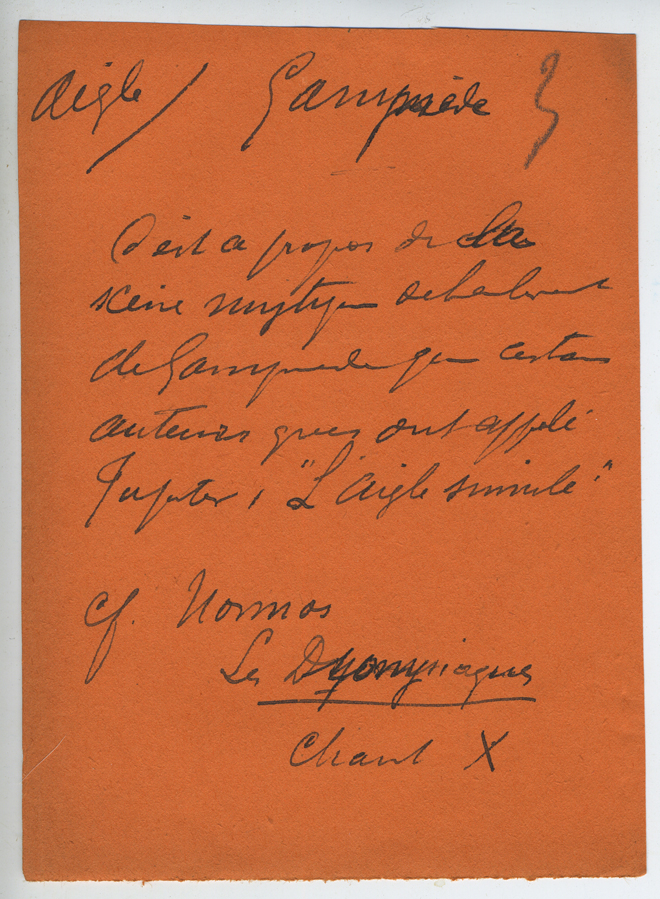 Aigle / Ganymède
C'est a propos de la
scène mystique
de Ganymede que certains
auteurs grecs ont appelé
Jupiter, "L'Aigle simulé".
cf. Nonnos
Les Dyonysiaques
Chant X